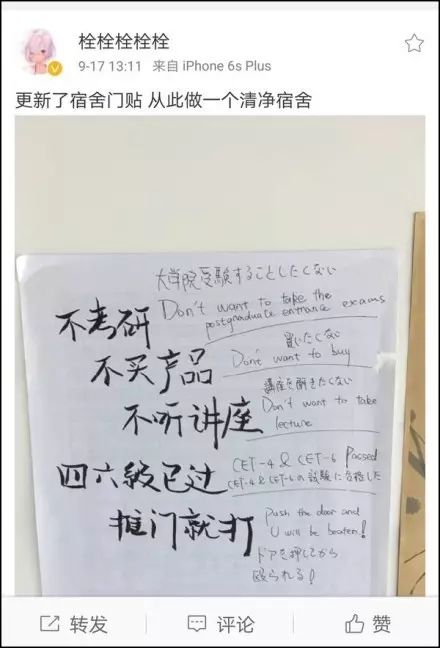 栓栓栓栓栓
9-17 13:11 来自 iPhone 6s Plus
更新了宿舍门贴 从此做一个清净宿舍
大学院受験することしたくない
不考研
Don't want to take the
postgraduate entrance exams
買いたくない
不买产品
Don't want to buy
講座を聞きたくない
不听讲座
Don't want to take
lecture
四六级已过
CET-4 & CET-6 Passed
CET-4 & CET-6の試験に合格した
推门就打
Push the door and
U will be beaten!
ドアを押してから
殴られる!
转发
评论
赞